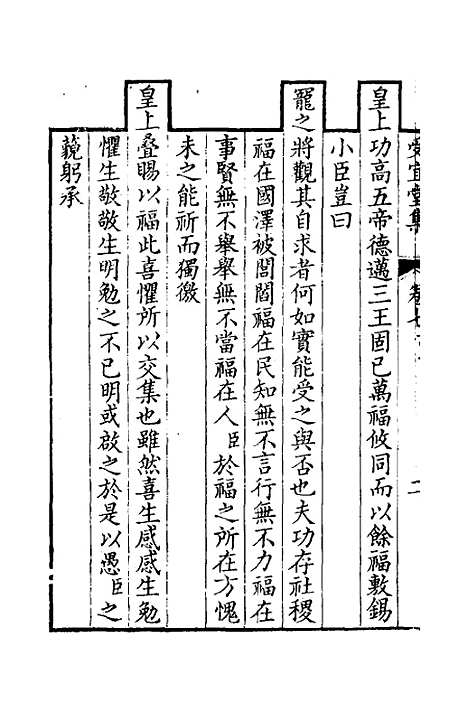 受宜堂集
二
皇上功高五帝德邁三王固已萬福攸同而以餘福敷錫
小臣豈曰
寵之將觀其自求者何如實能受之與否也夫功存社稷
福在國澤被閭閻福在民知無不言行無不力福在
事賢無不舉舉無不當福在人臣於福之所在方愧
未之能祈而獨徼
皇上疊賜以福此喜懼所以交集也雖然喜生感感生勉
懼生敬敬生明勉之不已明或啟之於是以愚臣之
藐躬承